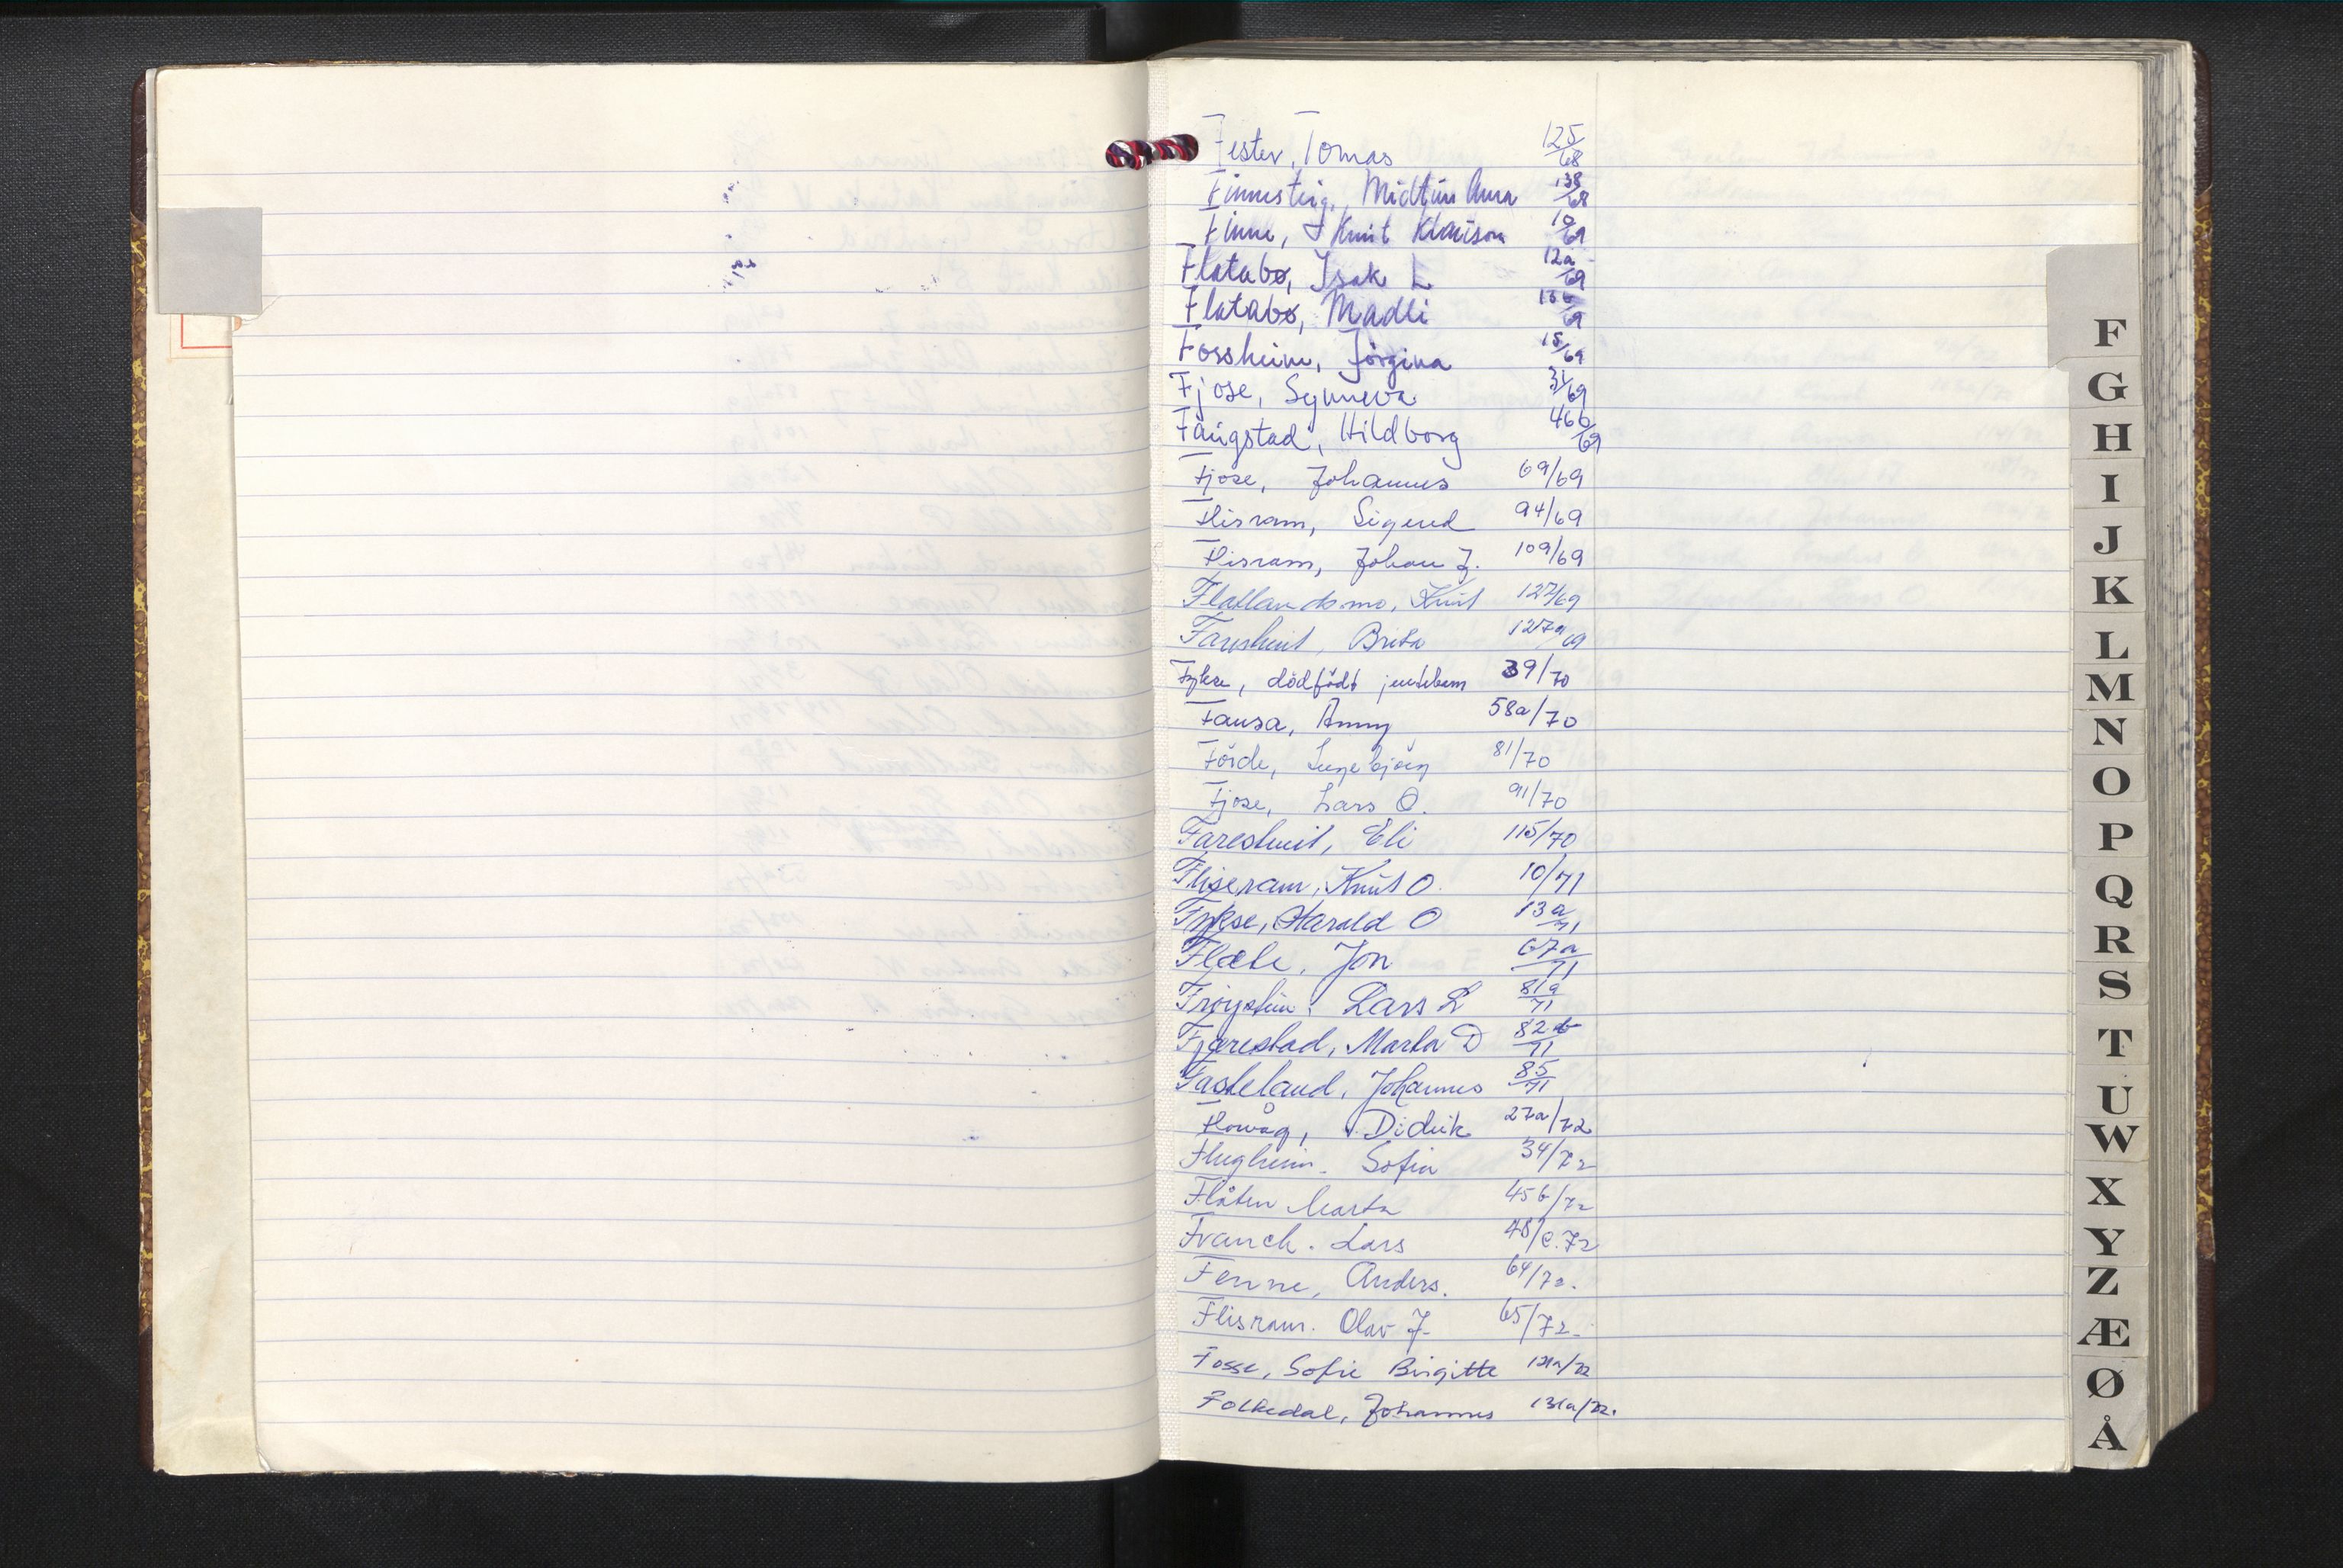 Fester, Tomas 125/68
Finnesteig, Midttun Anna 138/68
Finne, Knut Klausson 10/69
Flatabø, Isak L 12a/69
Flatabø, Madli 13b/69
Fossheim, Jørgina 15/69
Fjose, Synneva 31/69
Faugstad, Hildborg 46b/69
Fjose, Johannes 69/69
Flisram, Sigurd 94/69
Flisram, Johan J. 109/69
Flatlandsmo, Knut 127/69
Fareshuit, Brita 127a/69
Fykse, dödfödt jentebarn 39/70
Fausa, Anny 58a/70
Förde, Ingebjörg 81/70
Fjose, Lars O. 91/70
Fareshuit, Eli 115/70
Fliseram, Knut O. 10/71
Fykse, Harald O 13a/71
Flæte, Jon 67a/71
Frøystein, Lars L 81a/71
Fjærestad, Marta D 82b/71
Fasteland, Johannes 85/71
Flowåg, Didrik 27a/72
Flugheim. Sofia 34/72
Flåten Marta 45b/72
Franck. Lars 48/c.72
Fenne, Anders. 64/72.
Flisram. Olav J. 65/72.
Fosse, Sofie Birgitte 121a/72
Folkedal, Johannes 131a/72.
F
G
H
I
J
K
L
M
N
O
P
Q
R
S
T
U
W
X
Y
Z
Æ
Ø
Å